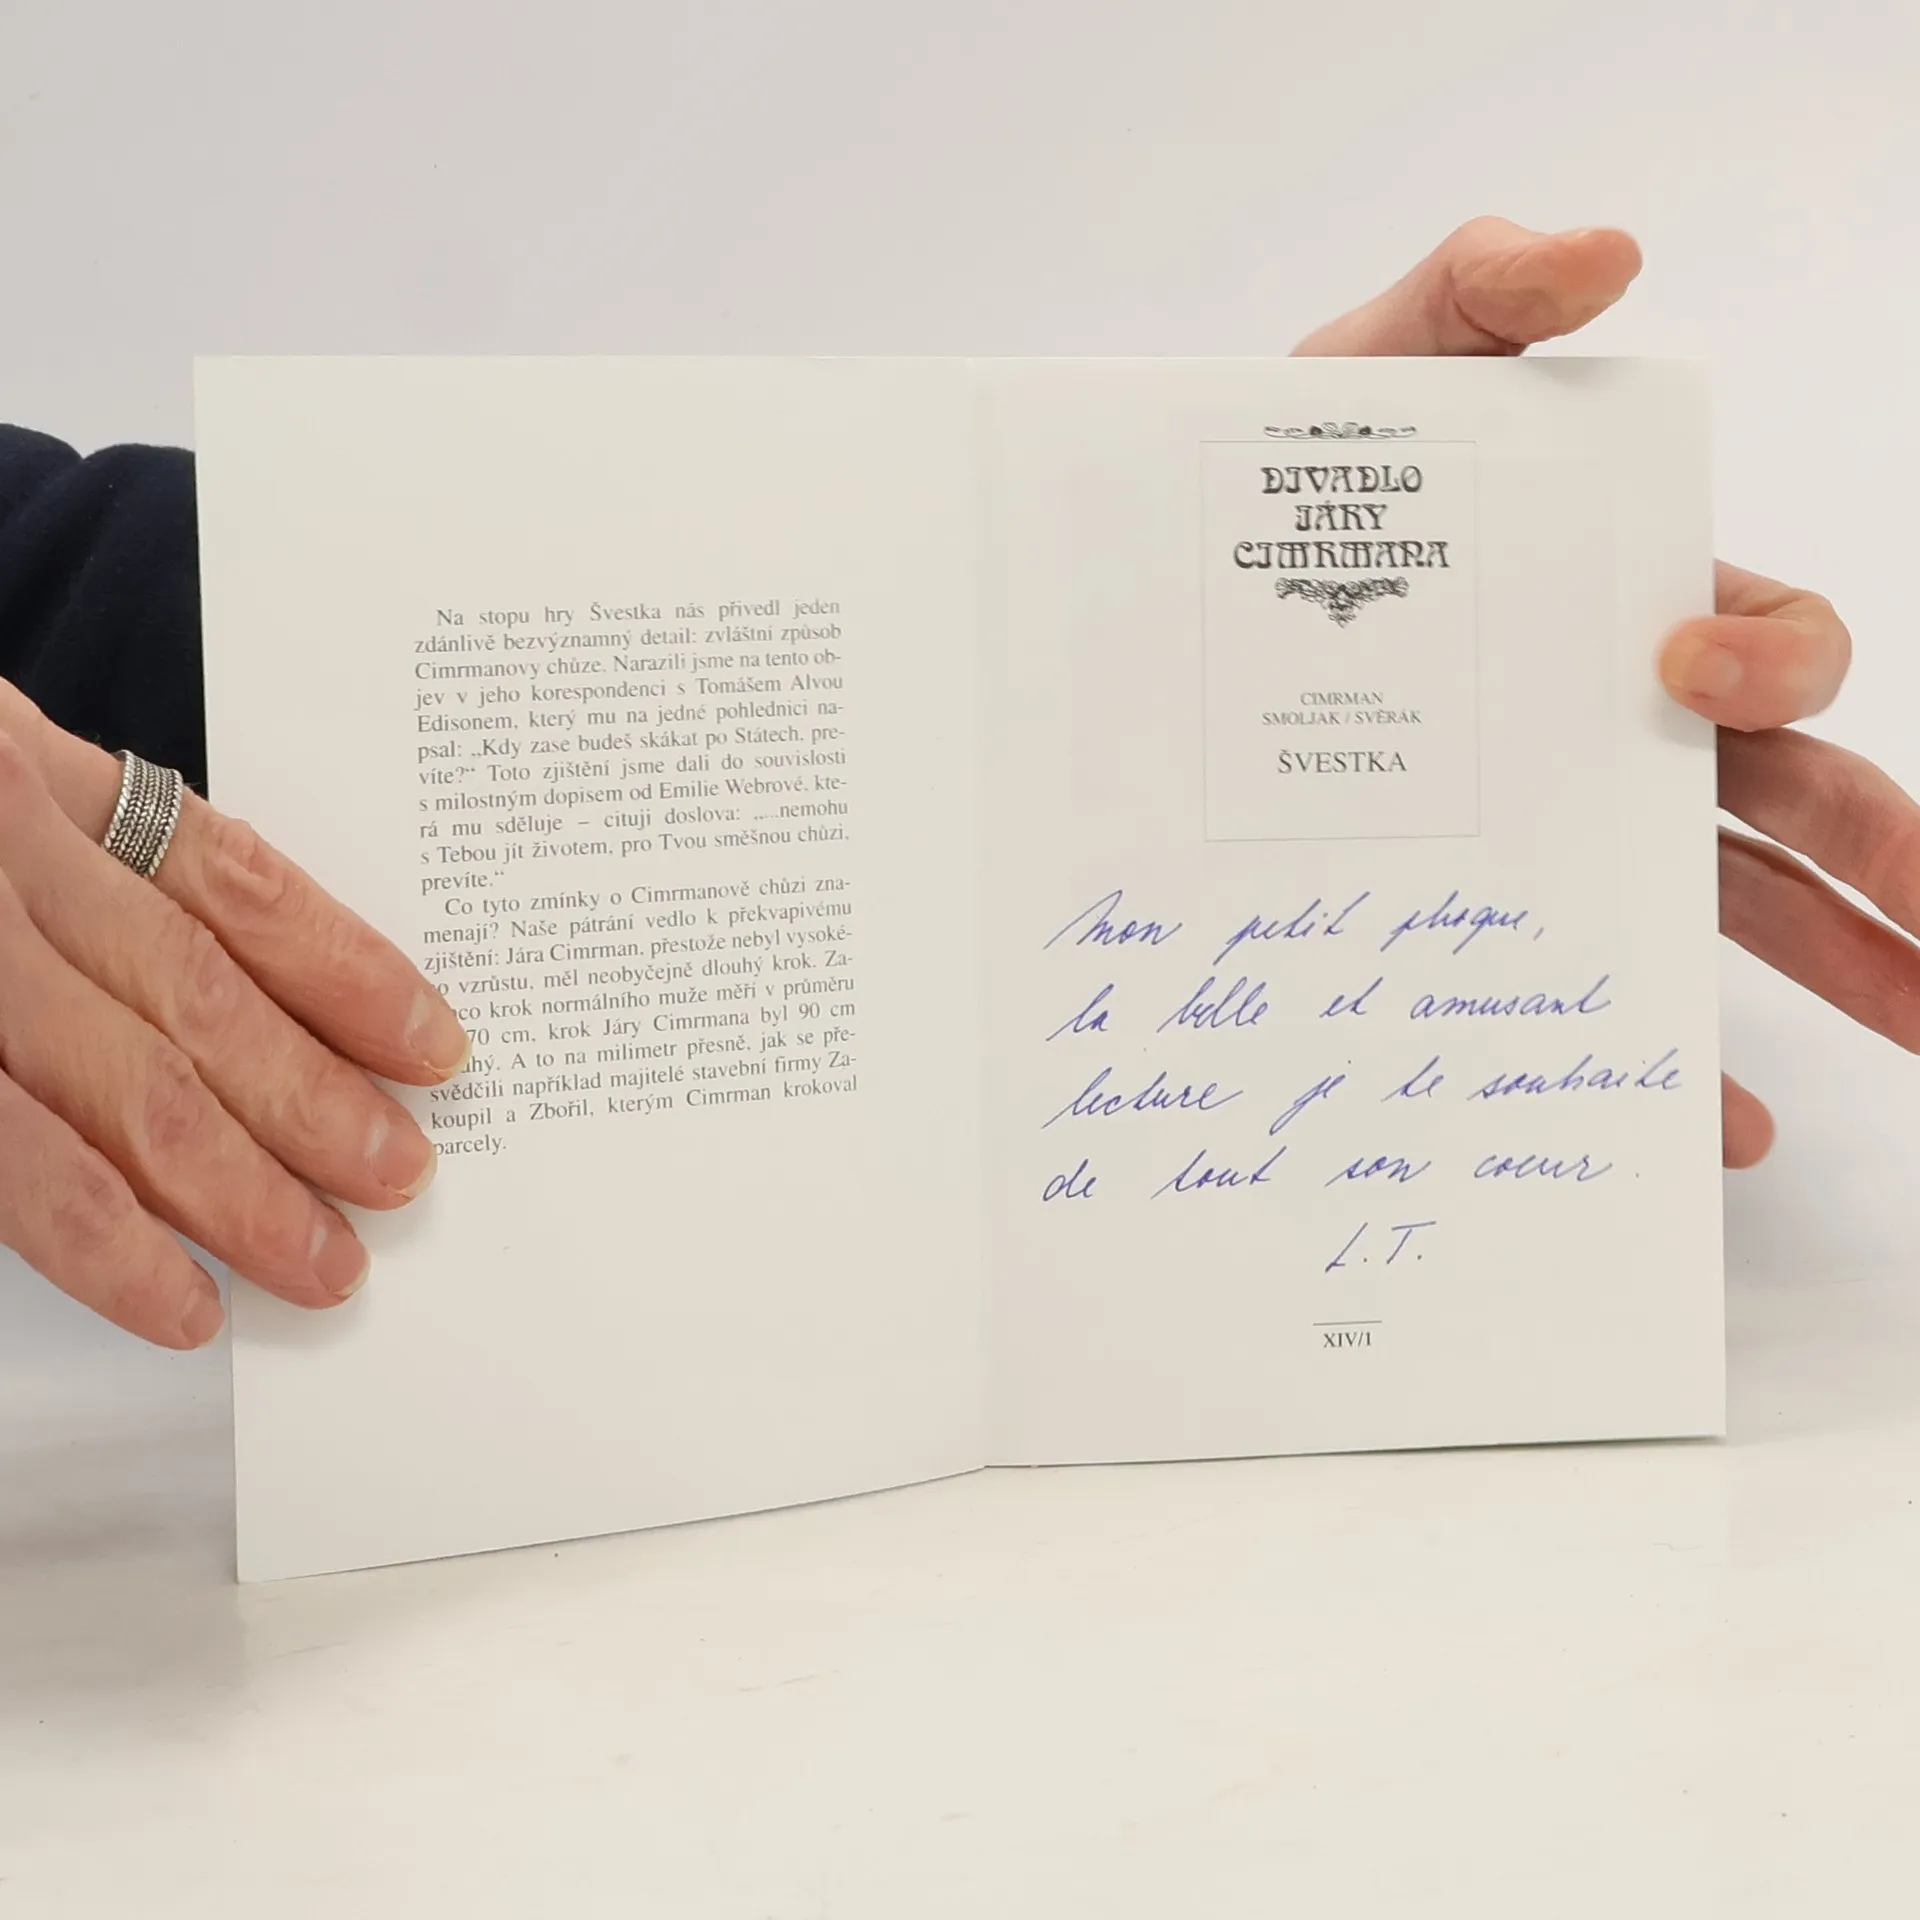 Na stopu hry Švestka nás přivedl jeden
zdánlivě bezvýznamný detail: zvláštní způsob
Cimrmanovy chůze. Narazili jsme na tento ob-
jev v jeho korespondenci s Tomášem Alvou
Edisonem, který mu na jedné pohlednici na-
psal: „Kdy zase budeš skákat po Státech, pre-
víte?“ Toto zjištění jsme dali do souvislosti
s milostným dopisem od Emilie Webrové, kte-
rá mu sděluje – cituji doslova: „...nemohu
s Tebou jít životem, pro Tvou směšnou chůzi,
prevíte.“
Co tyto zmínky o Cimrmanově chůzi zna-
menají? Naše pátrání vedlo k překvapivému
zjištění: Jára Cimrman, přestože nebyl vysoké-
o vzrůstu, měl neobyčejně dlouhý krok. Za-
co krok normálního muže měří v průměru
70 cm, krok Járy Cimrmana byl 90 cm
uhý. A to na milimetr přesně, jak se pře-
svědčili například majitelé stavební firmy Za-
koupil a Zbořil, kterým Cimrman krokoval
parcely.
DIVADLO
JÁRY
CIMRMANA
CIMRMAN
SMOLJAK / SVĚRÁK
ŠVESTKA
Mon petit phoque,
la belle et amusant
lecture je te souhaite
de tout son coeur.
L.T.
XIV/1